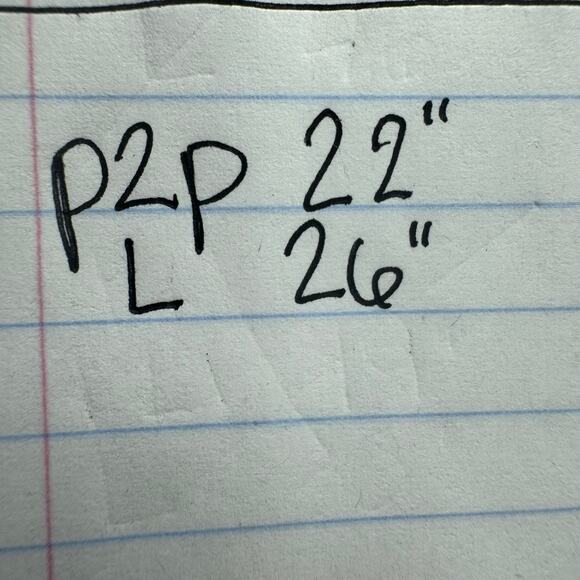 p2p 22"
L 26"